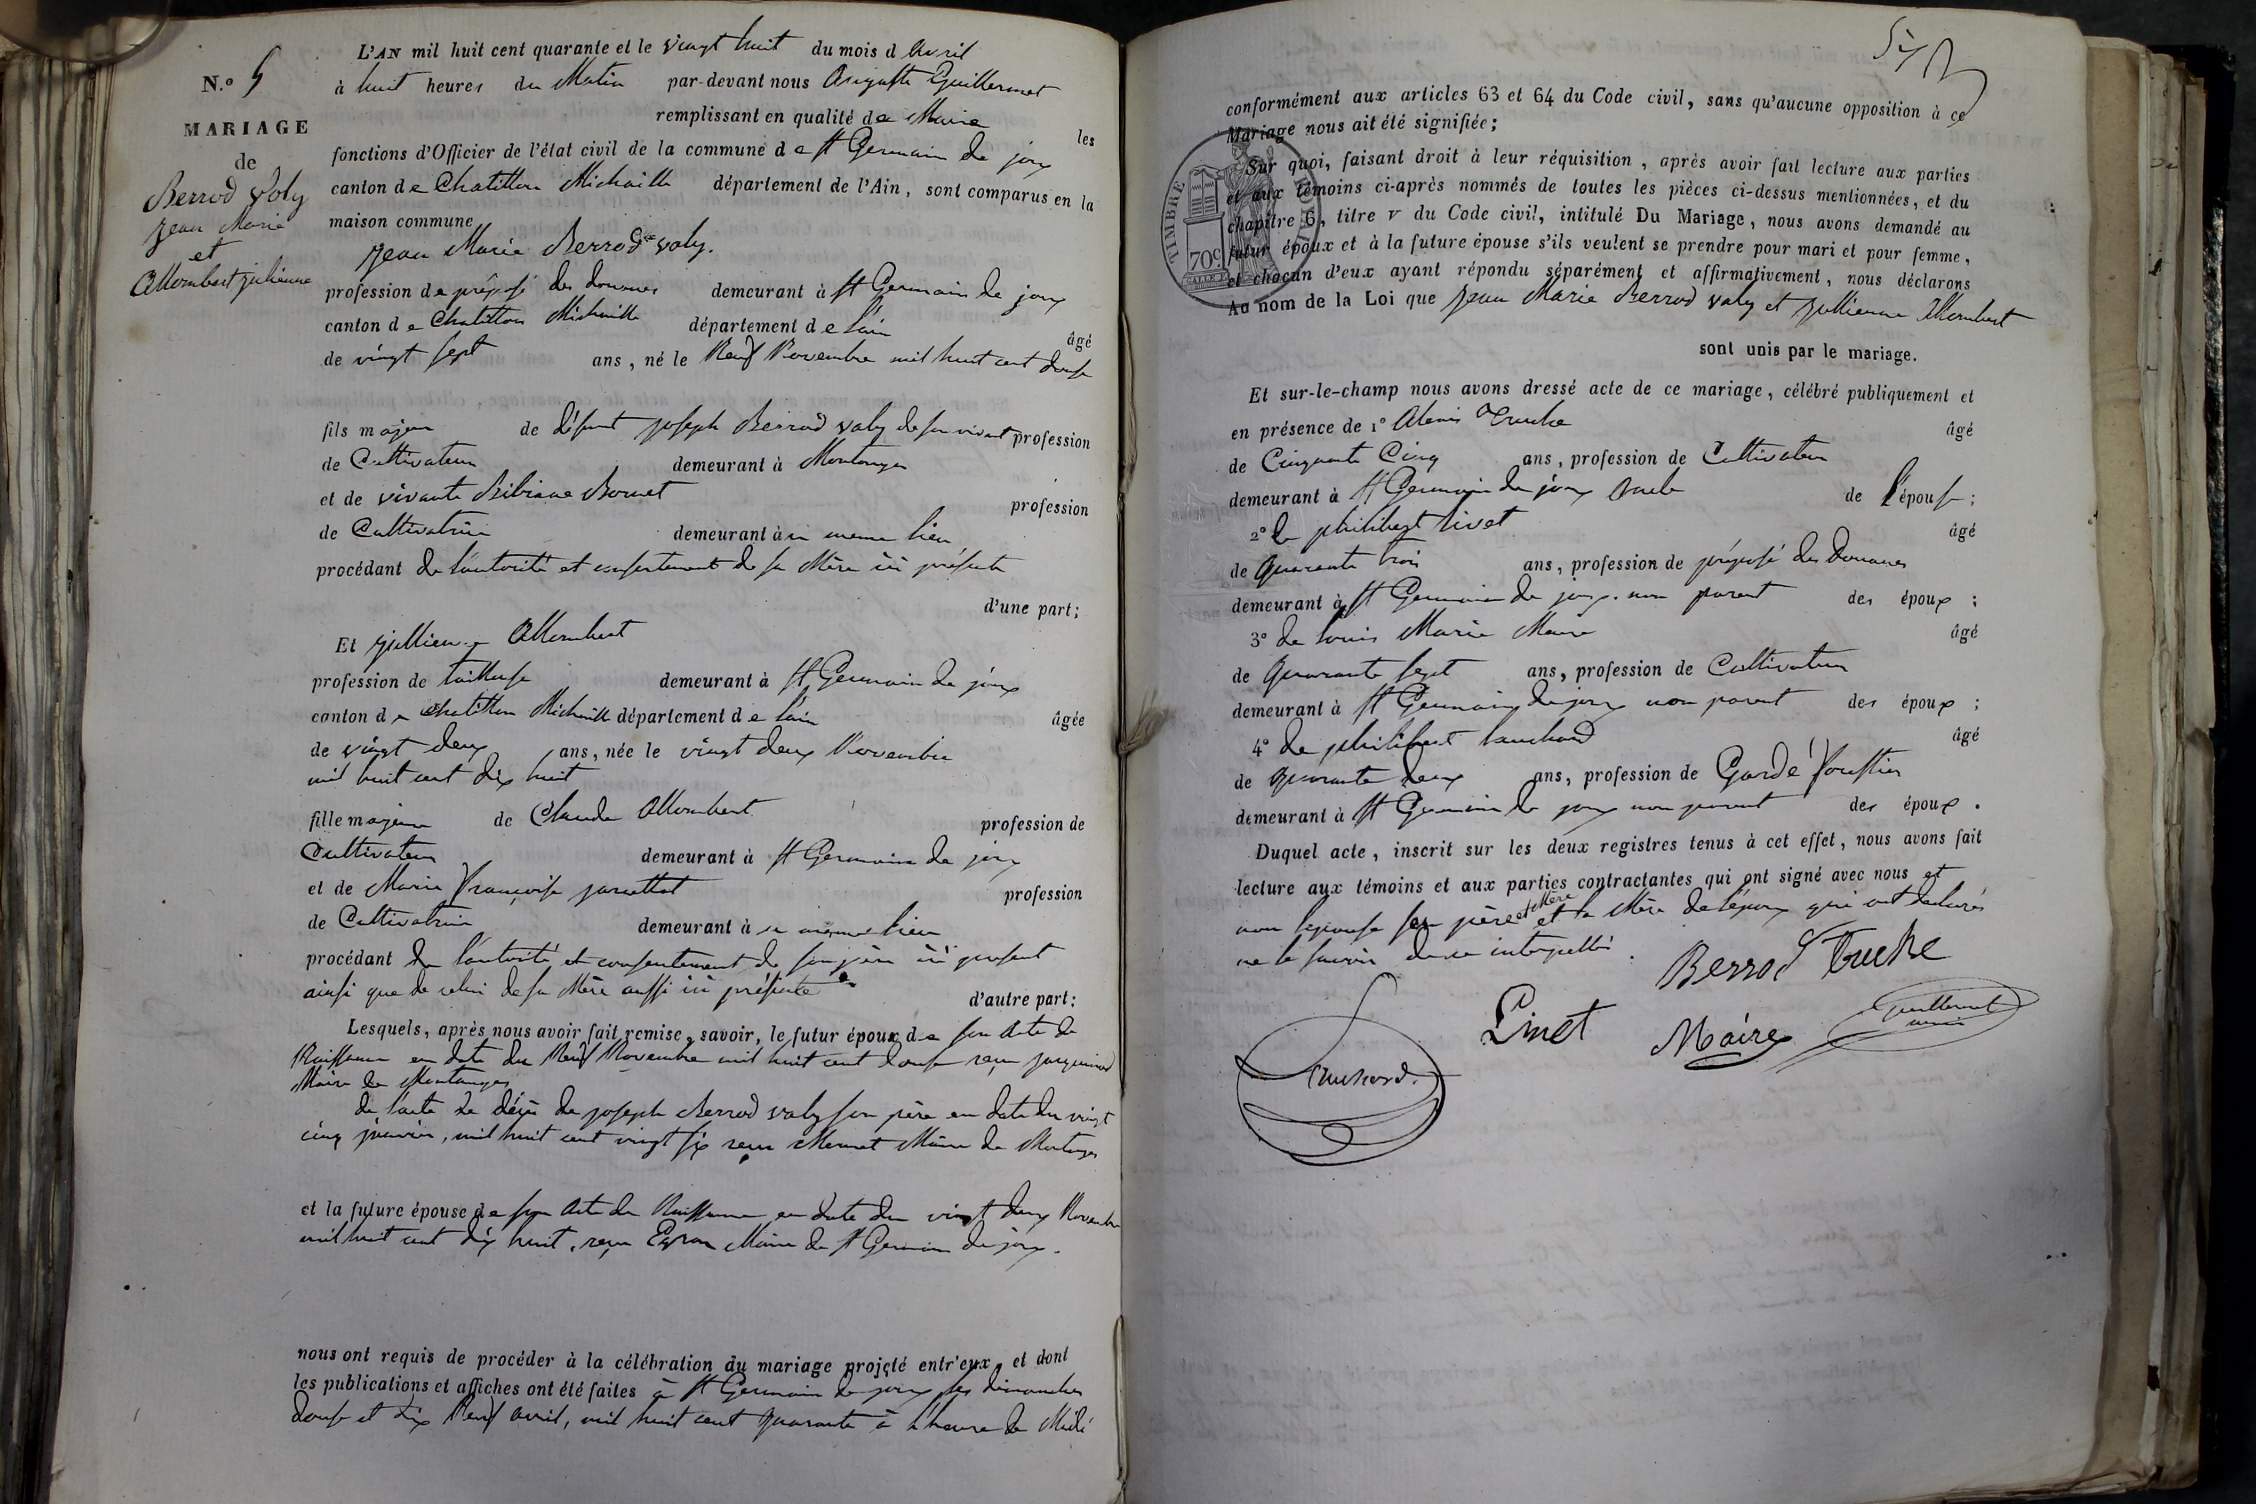 N.o 5
MARIAGE
de
Berrod Valy
Jean Marie
et
Allombert julienne
L'AN mil huit cent quarante et le vingt huit du mois d Avril
à huit heures du Matin par-devant nous Auguste Guillermet
remplissant en qualité de Maire les
fonctions d'Officier de l'état civil de la commune de St Germain de joux
canton de Chatillon Michaille département de l'Ain, sont comparus en la
maison commune
Jean Marie Berrod valy.
profession de préposé des douanes demeurant à St Germain de joux
canton de Chatillon Michaille département de l'ain âgé
de vingt sept ans, né le Neuf Novembre mil huit cent douse
fils majeur de défunt joseph Berrod valy de son vivant profession
de Cultivateur demeurant à Montanges
et de vivante Bibiane Bornet profession
de Cultivatrice demeurant à u meme lieu
procédant de l'autorité et consentement de sa Mère ici présente
d'une part;
Et jullienne Allombert
profession de tailleuse demeurant à St Germain de joux
canton de Chatillon Michaille département de l'ain âgée
de vingt deux ans, née le vingt deux Novembre
mil huit cent dix huit
fille majeure de Claude Allombert profession de
Cultivateur demeurant à St Germain de joux
et de Marie françoise profession
de Cultivatrice demeurant à u meme lieu
procédant de l'autorité et consentement de son père ici present
ainsi que de celui de sa Mère aussi ici présente
d'autre part:
Lesquels, après nous avoir fait remise, savoir, le futur époux de son Acte de
Naissance en date du Neuf Novembre mil huit cent douse reçu
Maire de Montanges
de l'acte de décès de joseph Berrod valy son père en date du vingt
cinq janvier, mil huit cent vingt six reçu Mermet Maire de Montanges
et la future épouse de son Acte de Naissance en date du vingt deux Novembre
mil huit cent dix huit, reçu Maire de St Germain de joux.
nous ont requis de procéder à la célébration du mariage projeté entr'eux, et dont
les publications et affiches ont été faites à St Germain de joux les dimanches
douse et dix Neuf avril, mil huit cent quarante à l'heure de Midi
conformément aux articles 63 et 64 du Code civil, sans qu'aucune opposition à ce
Mariage nous ait été signifiée;
TIMBRE ROYAL
70c
Sur quoi, faisant droit à leur réquisition, après avoir fait lecture aux parties
et aux témoins ci-après nommés de toutes les pièces ci-dessus mentionnées, et du
chapitre 6, titre v du Code civil, intitulé Du Mariage, nous avons demandé au
futur époux et à la future épouse s'ils veulent se prendre pour mari et pour femme,
et chacun d'eux ayant répondu séparément et affirmativement, nous déclarons
Au nom de la Loi que Jean Marie Berrod valy et jullienne Allombert
sont unis par le mariage.
Et sur-le-champ nous avons dressé acte de ce mariage, célébré publiquement et
en présence de 1o Alexis Truche âgé
de Cinquante Cinq ans, profession de Cultivateur
demeurant à St Germain de joux oncle de l'épouse;
2o de philibert livet âgé
de quarante trois ans, profession de préposé des Douanes
demeurant à St Germain de joux. non parent des époux;
3o de louis Marie Maire âgé
de quarante sept ans, profession de Cultivateur
demeurant à St Germain de joux non parent des époux;
4o de philibert âgé
de quarante deux ans, profession de Garde forestier
demeurant à St Germain de joux non parent des époux.
Duquel acte, inscrit sur les deux registres tenus à cet effet, nous avons fait
lecture aux témoins et aux parties contractantes qui ont signé avec nous et
non l'épouse son père et Mère et la Mère de l'époux qui ont declarés
ne le savoir de ce interpellés.
Berrod Truche
Livet Maire Guillermet
maire